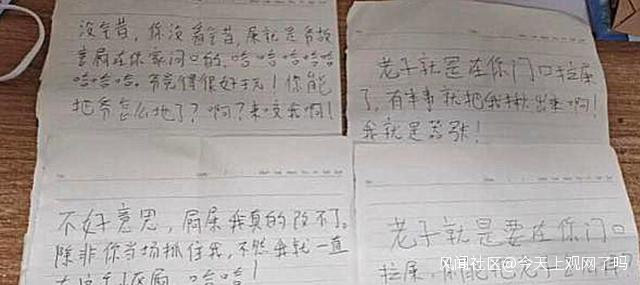 没错,你没看错,屎就是爷故
意屙在你家门口的.哈哈哈哈哈
哈哈哈。爷觉得很好玩!你能
把爷怎么地了?啊?来咬我啊!
老子就是在你门口拉屎
了,有本事就把我揪出来啊!
我就是嚣张!
不好意思,屙屎我真的改不了。
除非你当场抓住我,不然我就一直
哈哈!
老子就是要在你门口
拉屎,
风闻社区@今天上观网了吗